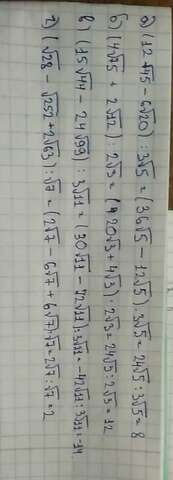 а) (12√45 - 6√20) : 3√5 = (36√5 - 12√5) : 3√5 = 24√5 : 3√5 = 8
б) (4√75 + 2√12) : 2√3 = (20√3 + 4√3) : 2√3 = 24√3 : 2√3 = 12
в) (15√44 - 24√99) : 3√11 = (30√11 - 72√11) : 3√11 = -42√11 : 3√11 = -14
г) (√28 - √252 + 2√63) : √7 = (2√7 - 6√7 + 6√7) : √7 = 2√7 : √7 = 2